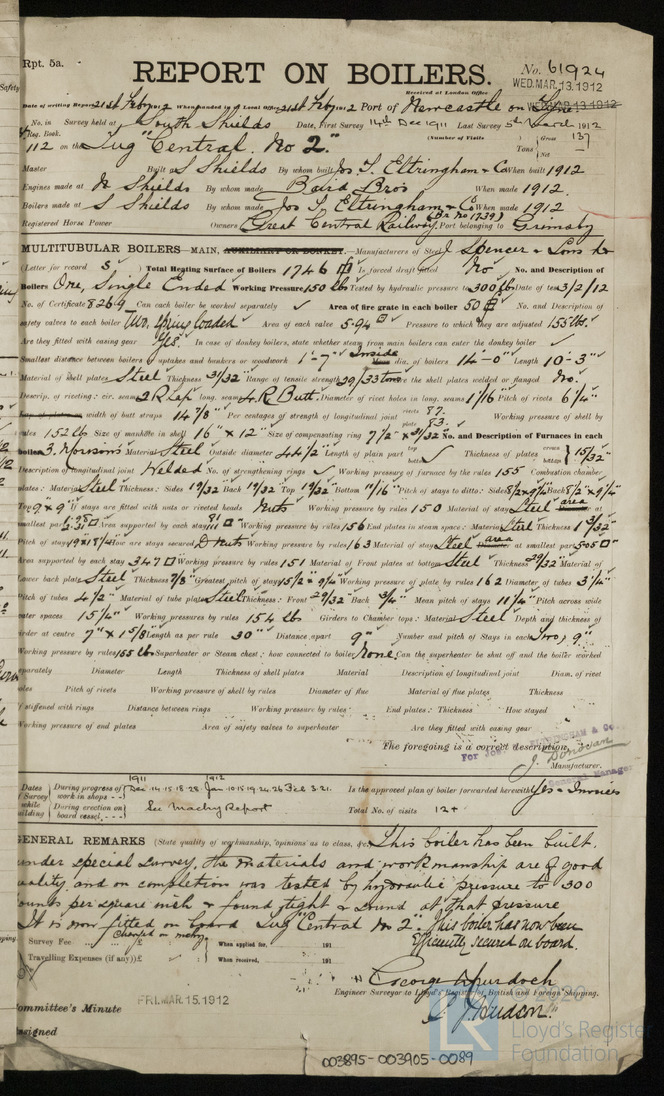 Rpt. 5a.
REPORT ON BOILERS.
No. 61924
Received at London Office WED. MAR. 13. 1912
Date of writing Report 21st Feby 1912 When handed in at Local Office 21st Feby 1912 Port of Newcastle on Tyne
No. in Survey held at South Shields Date, First Survey 14th Dec 1911 Last Survey 5th March 1912
Reg. Book. (Number of Visits
112 on the Tug "Central. No 2." Tons Gross 137 Net
Master Built at S Shields By whom built Jos. T. Eltringham & Co When built 1912
Engines made at N Shields By whom made Baird Bros When made 1912.
Boilers made at S Shields By whom made Jos T. Eltringham & Co When made 1912
(Br. No 1739)
Registered Horse Power Owners Great Central Railway Port belonging to Grimsby
MULTITUBULAR BOILERS—MAIN, AUXILIARY OR DONKEY.—Manufacturers of Steel J Spencer & Sons Ld
(Letter for record S) Total Heating Surface of Boilers 1746 Is forced draft fitted No No. and Description of
Boilers One, Single Ended Working Pressure 150 lbs Tested by hydraulic pressure to 300 lbs Date of test 3/2/12
No. of Certificate 8269 Can each boiler be worked separately ✓ Area of fire grate in each boiler 50 No. and Description of
safety valves to each boiler Two, spring loaded Area of each valve 5.94 Pressure to which they are adjusted 155 lbs.
Are they fitted with easing gear Yes. In case of donkey boilers, state whether steam from main boilers can enter the donkey boiler ✓
Smallest distance between boilers or uptakes and bunkers or woodwork 1'-7" Inside dia. of boilers 14'-0" Length 10'-3"
Material of shell plates Steel Thickness 31/32 Range of tensile strength 29/33 tons Are the shell plates welded or flanged No.
Descrip. of riveting: cir. seams 2 R Lap long. seams 4. R Butt. Diameter of rivet holes in long. seams 1 1/16 Pitch of rivets 6 1/4"
Lap of plates or width of butt straps 14 7/8" Per centages of strength of longitudinal joint rivets 87. plate 83. Working pressure of shell by
rules 152 lbs Size of manhole in shell 16" × 12" Size of compensating ring 7 1/2 × 31/32 No. and Description of Furnaces in each
boiler 3. Morison's Material Steel Outside diameter 44 1/2" Length of plain part top bottom ✓ Thickness of plates crown bottom 15/32"
Description of longitudinal joint Welded No. of strengthening rings ✓ Working pressure of furnace by the rules 155 Combustion chamber
plates: Material Steel Thickness: Sides 19/32 Back 19/32 Top 19/32 Bottom 11/16" Pitch of stays to ditto: Sides 8 1/2 × 9 1/4 Back 8 1/2" × 9 1/4"
Top 9" × 9" If stays are fitted with nuts or riveted heads Nuts Working pressure by rules 150 Material of stays Steel area at
smallest part Area supported by each stay 81 Working pressure by rules 156 End plates in steam space: Material Steel Thickness 1 3/32"
Pitch of stays 19 × 18 1/4" How are stays secured D nuts Working pressure by rules 163 Material of stays Steel area at smallest part 5.05
Area supported by each stay 347 Working pressure by rules 151 Material of Front plates at bottom Steel Thickness 29/32 Material of
Lower back plate Steel Thickness 7/8" Greatest pitch of stays 15 1/2 × 9 1/4 Working pressure of plate by rules 162 Diameter of tubes 3 1/4"
Pitch of tubes 4 1/2" Material of tube plates Steel Thickness: Front 29/32 Back 3/4" Mean pitch of stays 11 1/4" Pitch across wide
water spaces 15 1/4" Working pressures by rules 154 lbs Girders to Chamber tops: Material Steel Depth and thickness of
girder at centre 7" × 1 5/8 Length as per rule 30" Distance apart 9" Number and pitch of Stays in each Two, 9"
Working pressure by rules 155 lbs Superheater or Steam chest: how connected to boiler None. Can the superheater be shut off and the boiler worked
separately Diameter Length Thickness of shell plates Material Description of longitudinal joint Diam. of rivet
holes Pitch of rivets Working pressure of shell by rules Diameter of flue Material of flue plates Thickness
If stiffened with rings Distance between rings Working pressure by rules End plates: Thickness How stayed
Working pressure of end plates Area of safety valves to superheater Are they fitted with easing gear
The foregoing is a correct description,
J. Donovan Manufacturer.
General Manager
Dates of Survey while building
During progress of work in shops 1911 Dec 14. 15. 18. 28 1912 Jan 10. 15. 19. 24. 26 Feb 3. 21.
During erection on board vessel See Machy Report
Is the approved plan of boiler forwarded herewith Yes & Invoices
Total No. of visits 12+
GENERAL REMARKS (State quality of workmanship, opinions as to class, &c. This boiler has been built.
under special survey, the materials and workmanship are of good
quality, and on completion was tested by hydraulic pressure to 300
pounds per square inch & found tight & sound at that pressure
It is now fitted on board Tug "Central No 2". This boiler has now been
Efficiently secured on board.
Survey Fee £ Charged on machy When applied for, 191
Travelling Expenses (if any) £ When received, 191
George Murdoch
Engineer Surveyor to Lloyd's Register of British and Foreign Shipping.
Committee's Minute FRI. MAR. 15. 1912
Assigned
Lloyd's Register
Foundation
003895-003905-0089